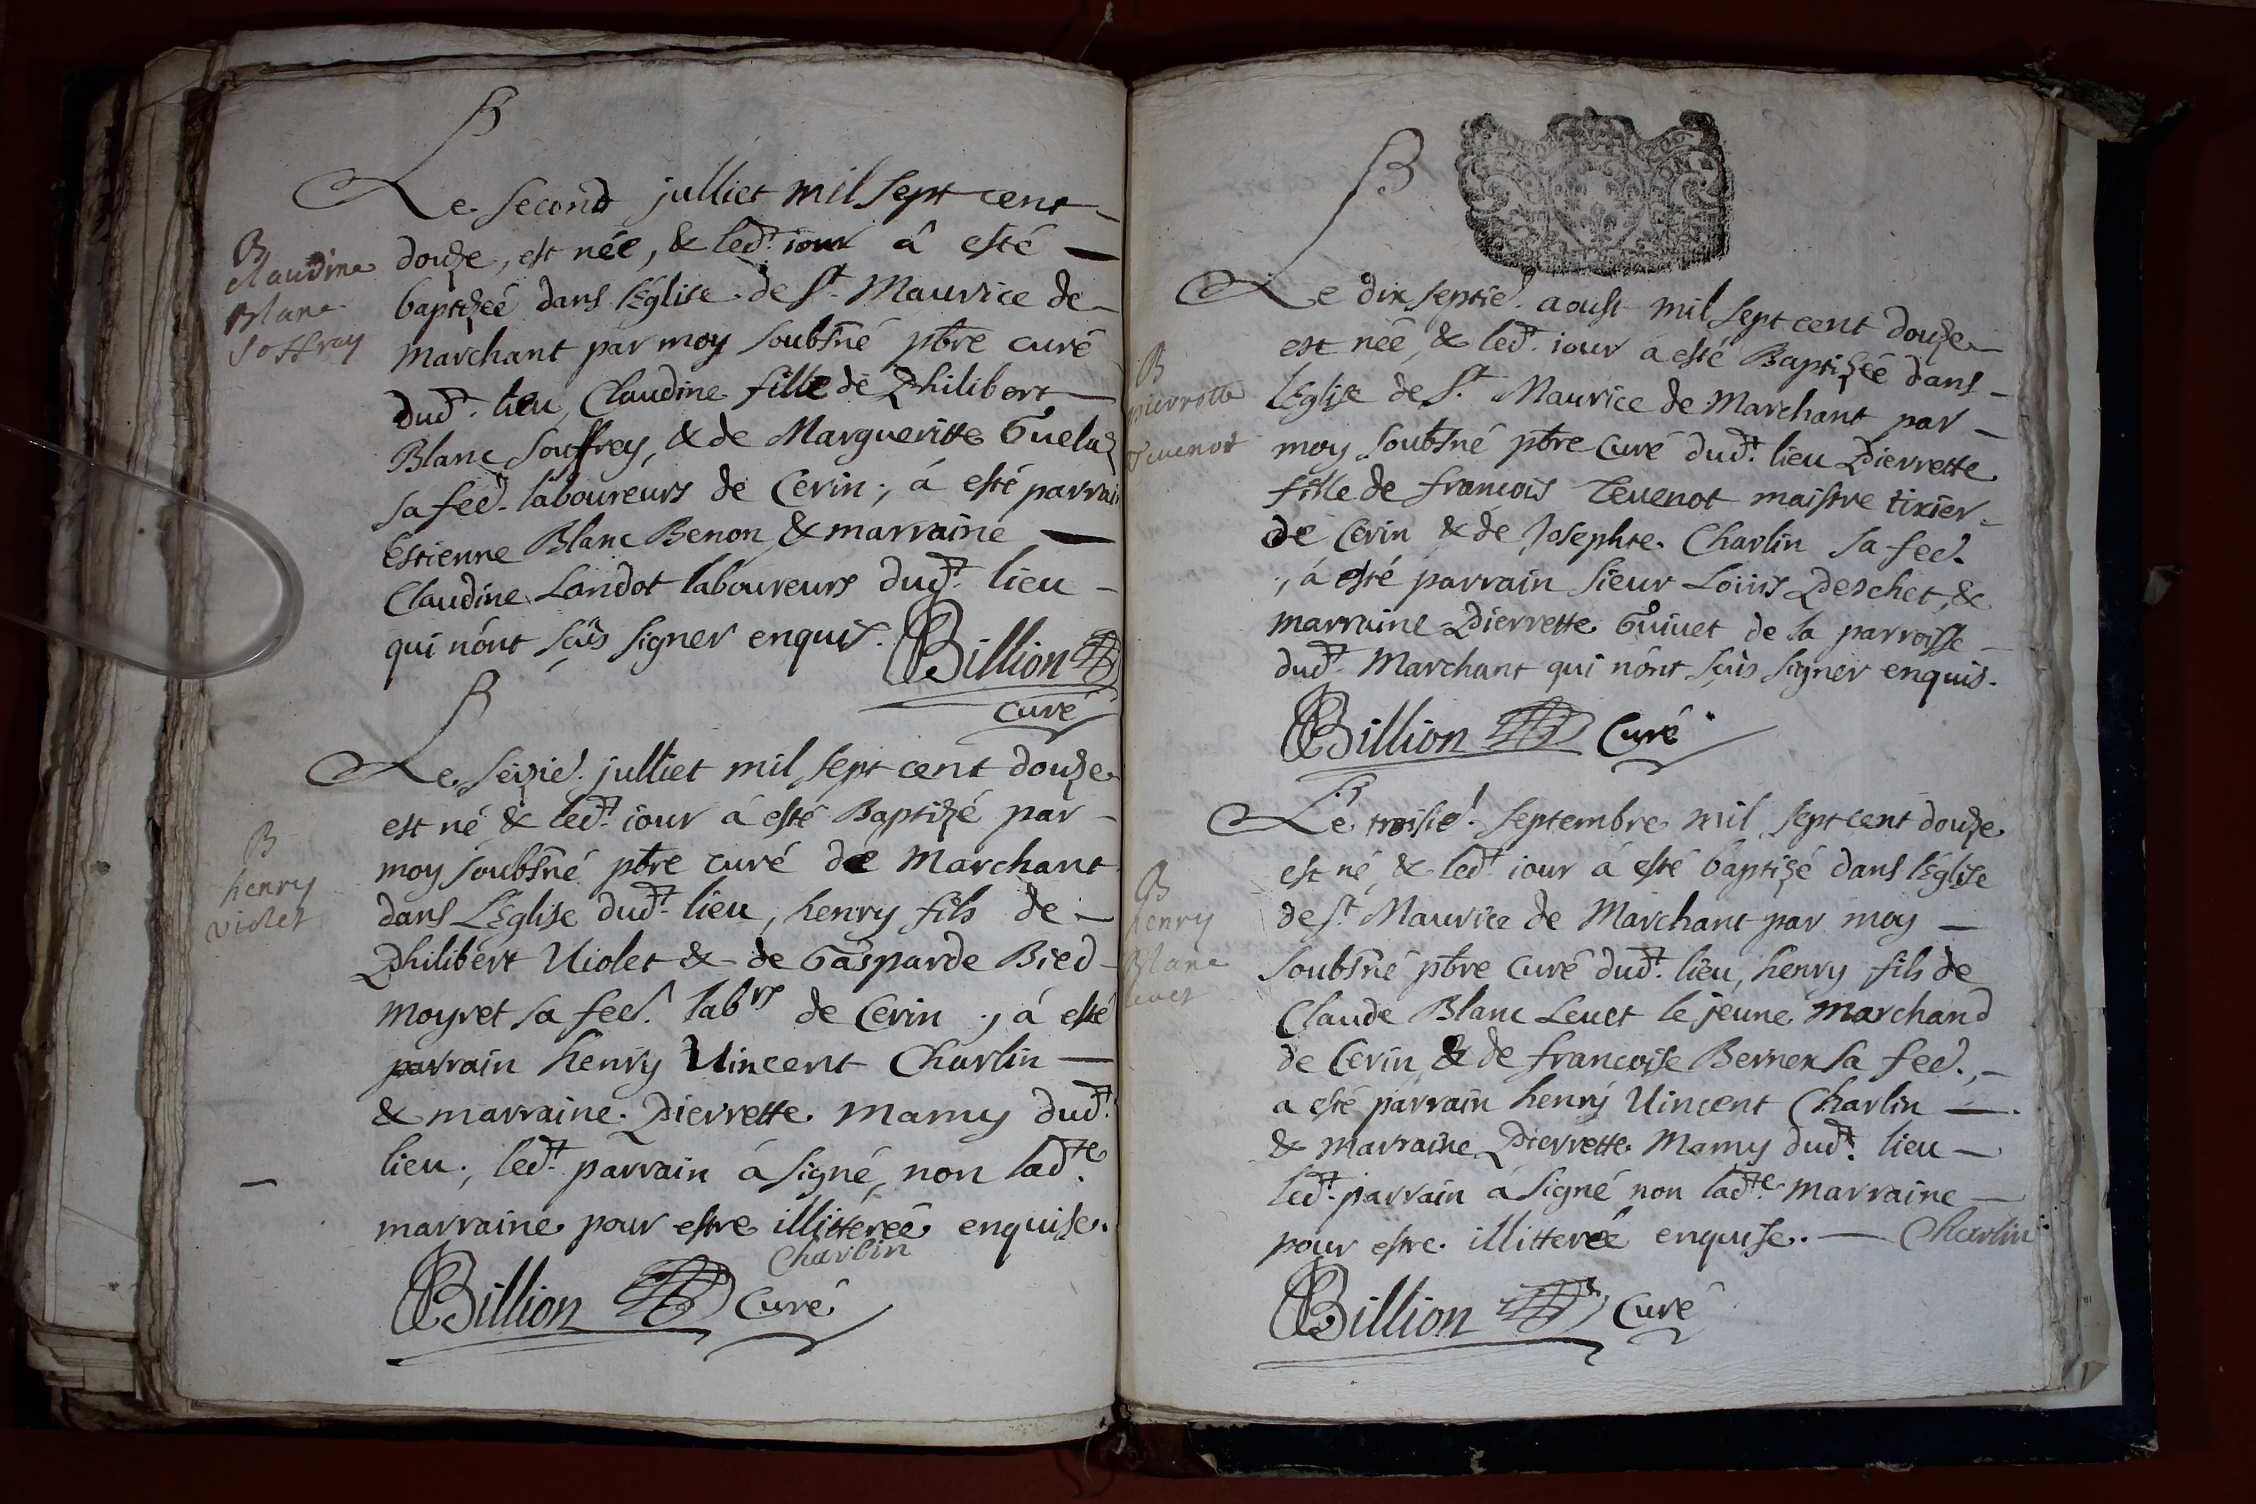 B
Le second julliet mil sept cent
B
Claudine
Blanc
Soffray
douze, est née, & led.t iour â esté
baptizeé dans l'Eglise de S.t Maurice de
Marchant par moy soubs̃né pb̃re curé
dud.t lieu, Claudine fille de Philibert
Blanc Souffrey, & de Margueritte Guelaz
sa fee. laboureurs de Cerin; á esté parrain
Estienne Blanc Benon & marraine
Claudine Landot laboureurs dud.t lieu
qui nónt sçûs signer enquis.
Billion
curé
B
Le seizie. julliet mil sept cent douze
est né & led.t iour á esté Baptizé par
moy soubs̃né pb̃re curé de Marchant
B
henry
violet
dans L'Eglise dud.t lieu, henry fils de
Philibert Uiolet & de Gasparde Bied
Moyret sa fee. lab.rs de Cerin, á esté
parrain henry Uincent Charlin
& marraine Pierrette Mamy dud.t
lieu, led.t parrain á signé, non lad.te
marraine pour estre illitereé enquise.
Charlin
Billion Curé
B
Le dix septie. aoust mil sept cent douze
est neé, & led.t iour á esté Baptizeé dans
B
pierrette
Teuenot
l'Eglise de S.t Maurice de Marchant par
moy soubs̃né pb̃re Curé dud.t lieu Pierrette
fille de francois Teuenot maistre tixier
de Cerin & de Josephte Charlin sa fee.
, á esté parrain sieur Loüis Deschet, &
marraine Pierrette Guiuet de la parroisse
dud.t Marchant qui nónt sçûs signer enquis.
Billion Curé
B
Le troisie. Septembre mil sept cent douze
est né, & led.t iour á esté baptizé dans l'Eglise
B
henry
Blanc
leuet
de S.t Maurice de Marchant par moy
soubs̃né pb̃re Curé dud.t lieu, henry fils de
Claude Blanc Leuet le jeune marchand
de Cerin & de francoise Berner sa fee.,
a esté parrain henry Uincent Charlin
& marraine Pierrette Mamy dud.t lieu
led.t parrain á signé non lad.te marraine
pour estre illitereé enquise. Charlin
Billion Curé